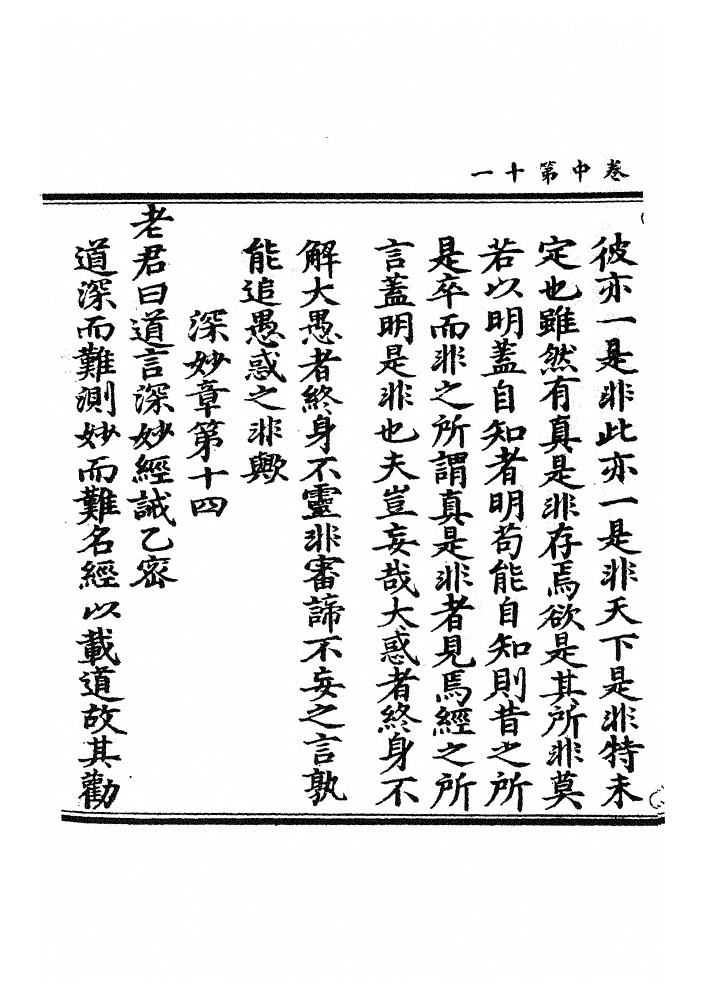 卷中第十一
彼亦一是非此亦一是非天下是非特未
定也雖然有真是非存焉欲是其所非莫
若以明蓋自知者明苟能自知則昔之所
是卒而非之所謂真是非者見焉經之所
言蓋明是非也夫豈妄哉大惑者終身不
解大愚者終身不靈非審諦不妄之言孰
能追愚惑之非歟
深妙章第十四
老君曰道言深妙經誡乙密
道深而難測妙而難名經以載道故其勸